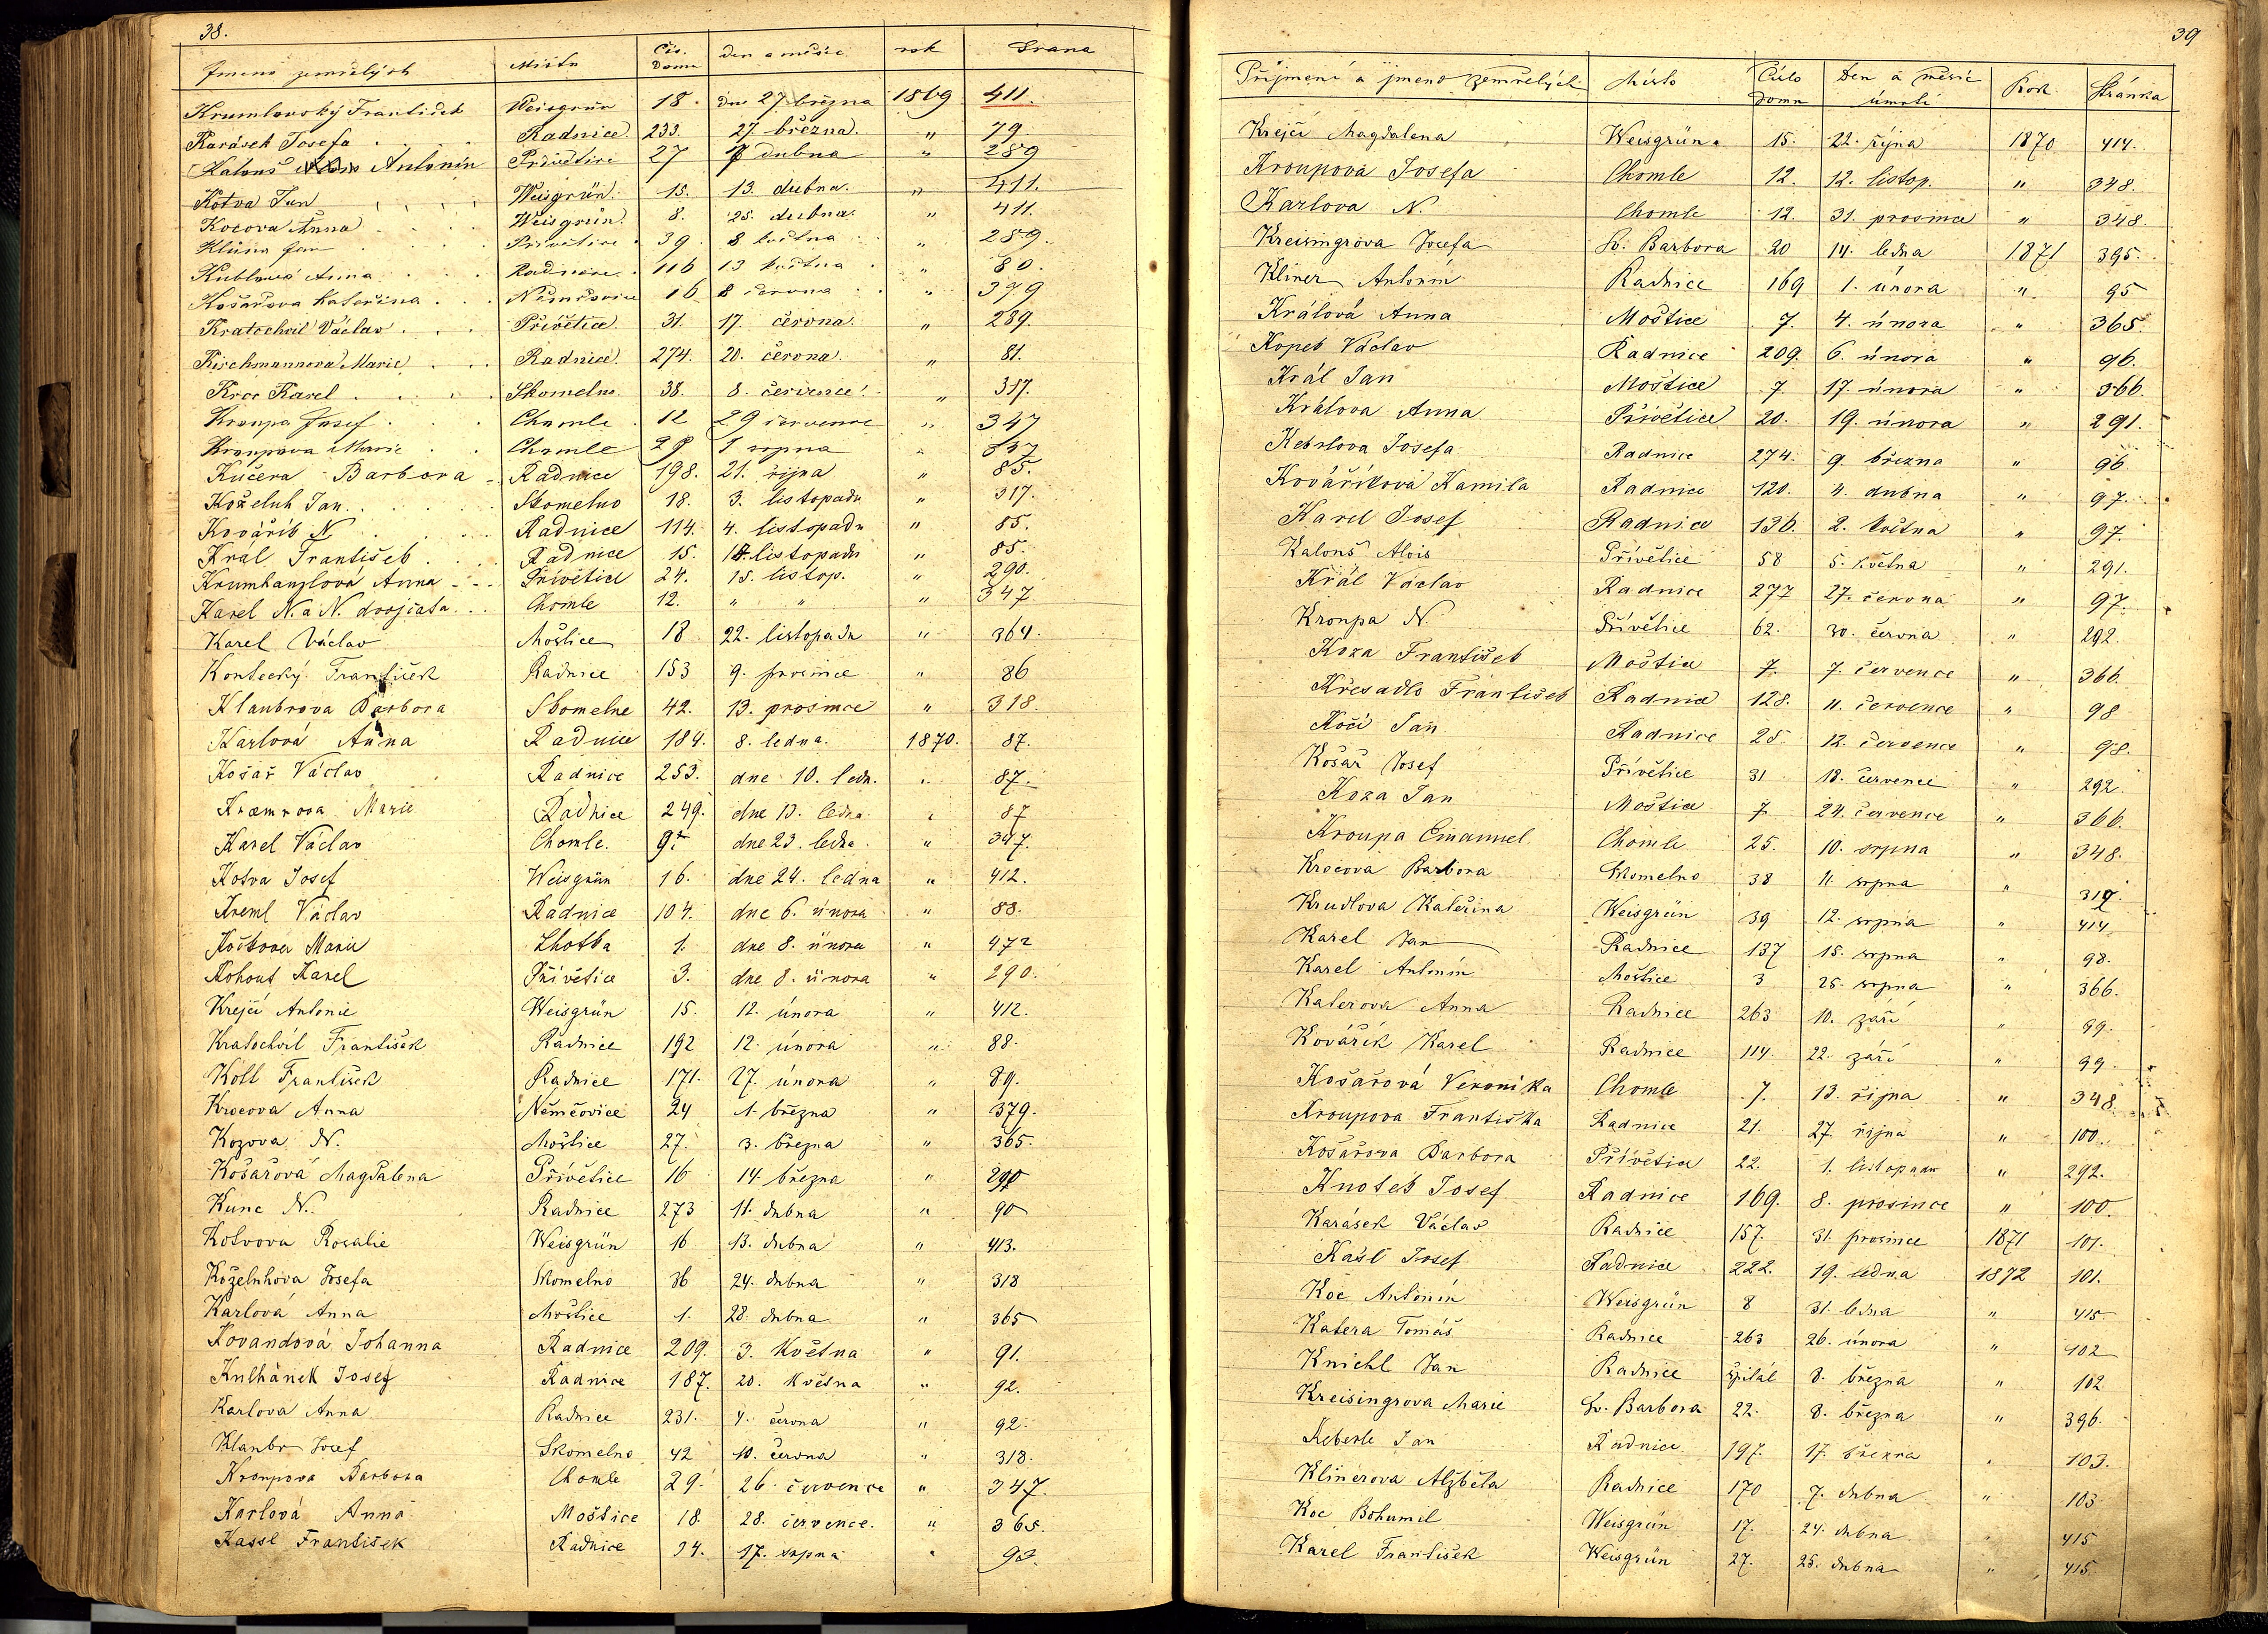 38.
Jmeno zemřelých Místo Čís. Domu den a měsíc rok Strana
Krumlovský František Weisgrün 18. dne 27 března 1869 411.
Karásek Josefa Radnice 233. 27. března. " 79.
Kalouš Antonín 27 dubna " 289
Kotva Jan Weisgrün. 15. 13. dubna. " 411.
Kocova Anna Weisgrün. 8. 25. dubna. " 411.
Klíma Jan Přivětice 39. 8 května " 289.
Kublová Anna Radnice. 116 13 května " 80.
Košařova Kateřina Němčovice 16 8 června " 379
Kratochvil Václav Přivětice 31. 17. června. " 289.
Kirchmannova Marie Radnice. 274. 20. června. " 81.
Kroc Karel Skomelno. 38. 8. července. " 317.
Kroupa Josef Chomle 12 29 července " 347
Kroupova Marie Chomle 29 1 srpna "
Kučera Barbora Radnice 198. 21. října " 85.
Koželuh Jan Skomelno 18. 3. listopadu " 317.
Kovářík N Radnice 114. 4. listopadu " 85.
Kral František Radnice 15. listopadu " 85.
Krumhanzlová Anna Přivětice 24. 15. listop. " 290.
Karel N. a N. dvojčata Chomle 12. " " " 347
Karel Václav Moštice 18 22. listopadu " 364.
Kontecký František Radnice 153 9. prosince " 86
Klaubrova Barbora Skomelne 42. 13. prosince " 318.
Karlová Anna Radnice 184. 8. ledna. 1870. 87.
Košař Václav Radnice 253. dne 10. ledn. " 87.
Kramrova Marie Radnice 249. dne 13. ledna " 87
Karel Václav Chomle. 9. dne 23. ledna " 347.
Kotva Josef Weisgrün 16. dne 24. ledna " 412.
Kreml Václav Radnice 104. dne 6. února " 88.
Koštova Marie Lhotka 1. dne 8. února " 472
Kohout Karel Přivětice 3. dne 8. února " 290.
Krejčí Antonie Weisgrün 15. 12. února " 412.
Kratochvíl František Radnice 192 12. února " 88.
Koll František Radnice 171. 27. února " 89.
Krocova Anna Němčovice 24 1. března " 379.
Kozova N. Moštice 27. 3. března " 365.
Košařová Magdalena Přívětice 16 14. března " 290
Kunc N. Radnice 273 11. dubna " 90
Kotvova Rosalie Weisgrün 16 13. dubna " 413.
Koželuhova Josefa Skomelno 36 24. dubna " 318
Karlová Anna Moštice 1. 28. dubna " 365
Kovandová Johanna Radnice 209. 3. Května " 91.
Kulhánek Josef Radnice 187. 20. Května " 92.
Karlova Anna Radnice 231. 4. června " 92.
Klaubr Josef Skomelno 42 10. června " 318.
Kroupova Barbora Chomle 29. 26. července " 347.
Karlová Anna Moštice 18. 28. července. " 365.
Kassl František Radnice 94. 17. srpna " 93.
39
Příjmení a jmeno zemřelých Místo Číslo Domu Den a měsíc úmrtí Rok Stránka
Krejčí Magdalena Weisgrün. 15. 22. října 1870 414.
Kroupová Josefa Chomle 12. 12. listop. " 348.
Karlova N. Chomle 12. 31. prosince " 348.
Kreisingrova Josefa Sv. Barbora 20 14. ledna 1871 395.
Kliner Antonín Radnice 169 1. února " 95
Králová Anna Moštice 7. 4. února " 365.
Kopet Václav Radnice 209. 6. února " 96.
Král Jan Moštice 7. 17. února " 366.
Králova Anna Přívětice 20. 19. února " 291.
Kebrlova Josefa Radnice 274. 9. března " 96.
Kováříková Kamila Radnice 120. 4. dubna " 97.
Karel Josef Radnice 136. 2. května " 97.
Kalouš Alois Přívětice 58 5. května " 291.
Král Václav Radnice 277 27. června " 97.
Kroupa N. Přívětice 62. 30. června " 292
Koza František Moštice 7. 7. července " 366.
Křesadlo František Radnice 128. 11. července " 98
Kočí Jan Radnice 25. 12. července " 98.
Košař Josef Přívětice 31 18. července " 292.
Koza Jan Moštice 7. 24. července " 366.
Kroupa Emanuel Chomle 25. 10. srpna " 348.
Krocova Barbora Skomelno 38 11. srpna " 319.
Krudlova Kateřina Weisgrün 39 12. srpna " 414
Karel Jan Radnice 137 15. srpna " 98.
Karel Antonín Moštice 3 25. srpna " 366.
Katerova Anna Radnice 263 10. září " 99.
Kovářík Karel Radnice 114. 22. září " 99.
Košařová Veronika Chomle 7. 13. října " 348
Kroupova Františka Radnice 21. 27. října " 100.
Košařova Barbora Přívětice 22. 1. listopadu " 292.
Knotek Josef Radnice 169. 8. prosince " 100.
Karásek Václav Radnice 157. 31. prosince 1871 101.
Kašl Josef Radnice 222. 19. ledna 1872 101.
Koc Antonín Weisgrün 8 31. ledna " 415.
Katera Tomáš Radnice 263 26. února " 102
Knichl Jan Radnice špitál 8. března " 102
Kreisingrova Marie Sv. Barbora 22. 8. března " 396.
Keberle Jan Radnice 197. 17. března " 103.
Klinerova Alžběta Radnice 170 7. dubna " 103
Koc Bohumil Weisgrün 17. 24. dubna " 415
Karel František Weisgrün 27. 25. dubna " 415.